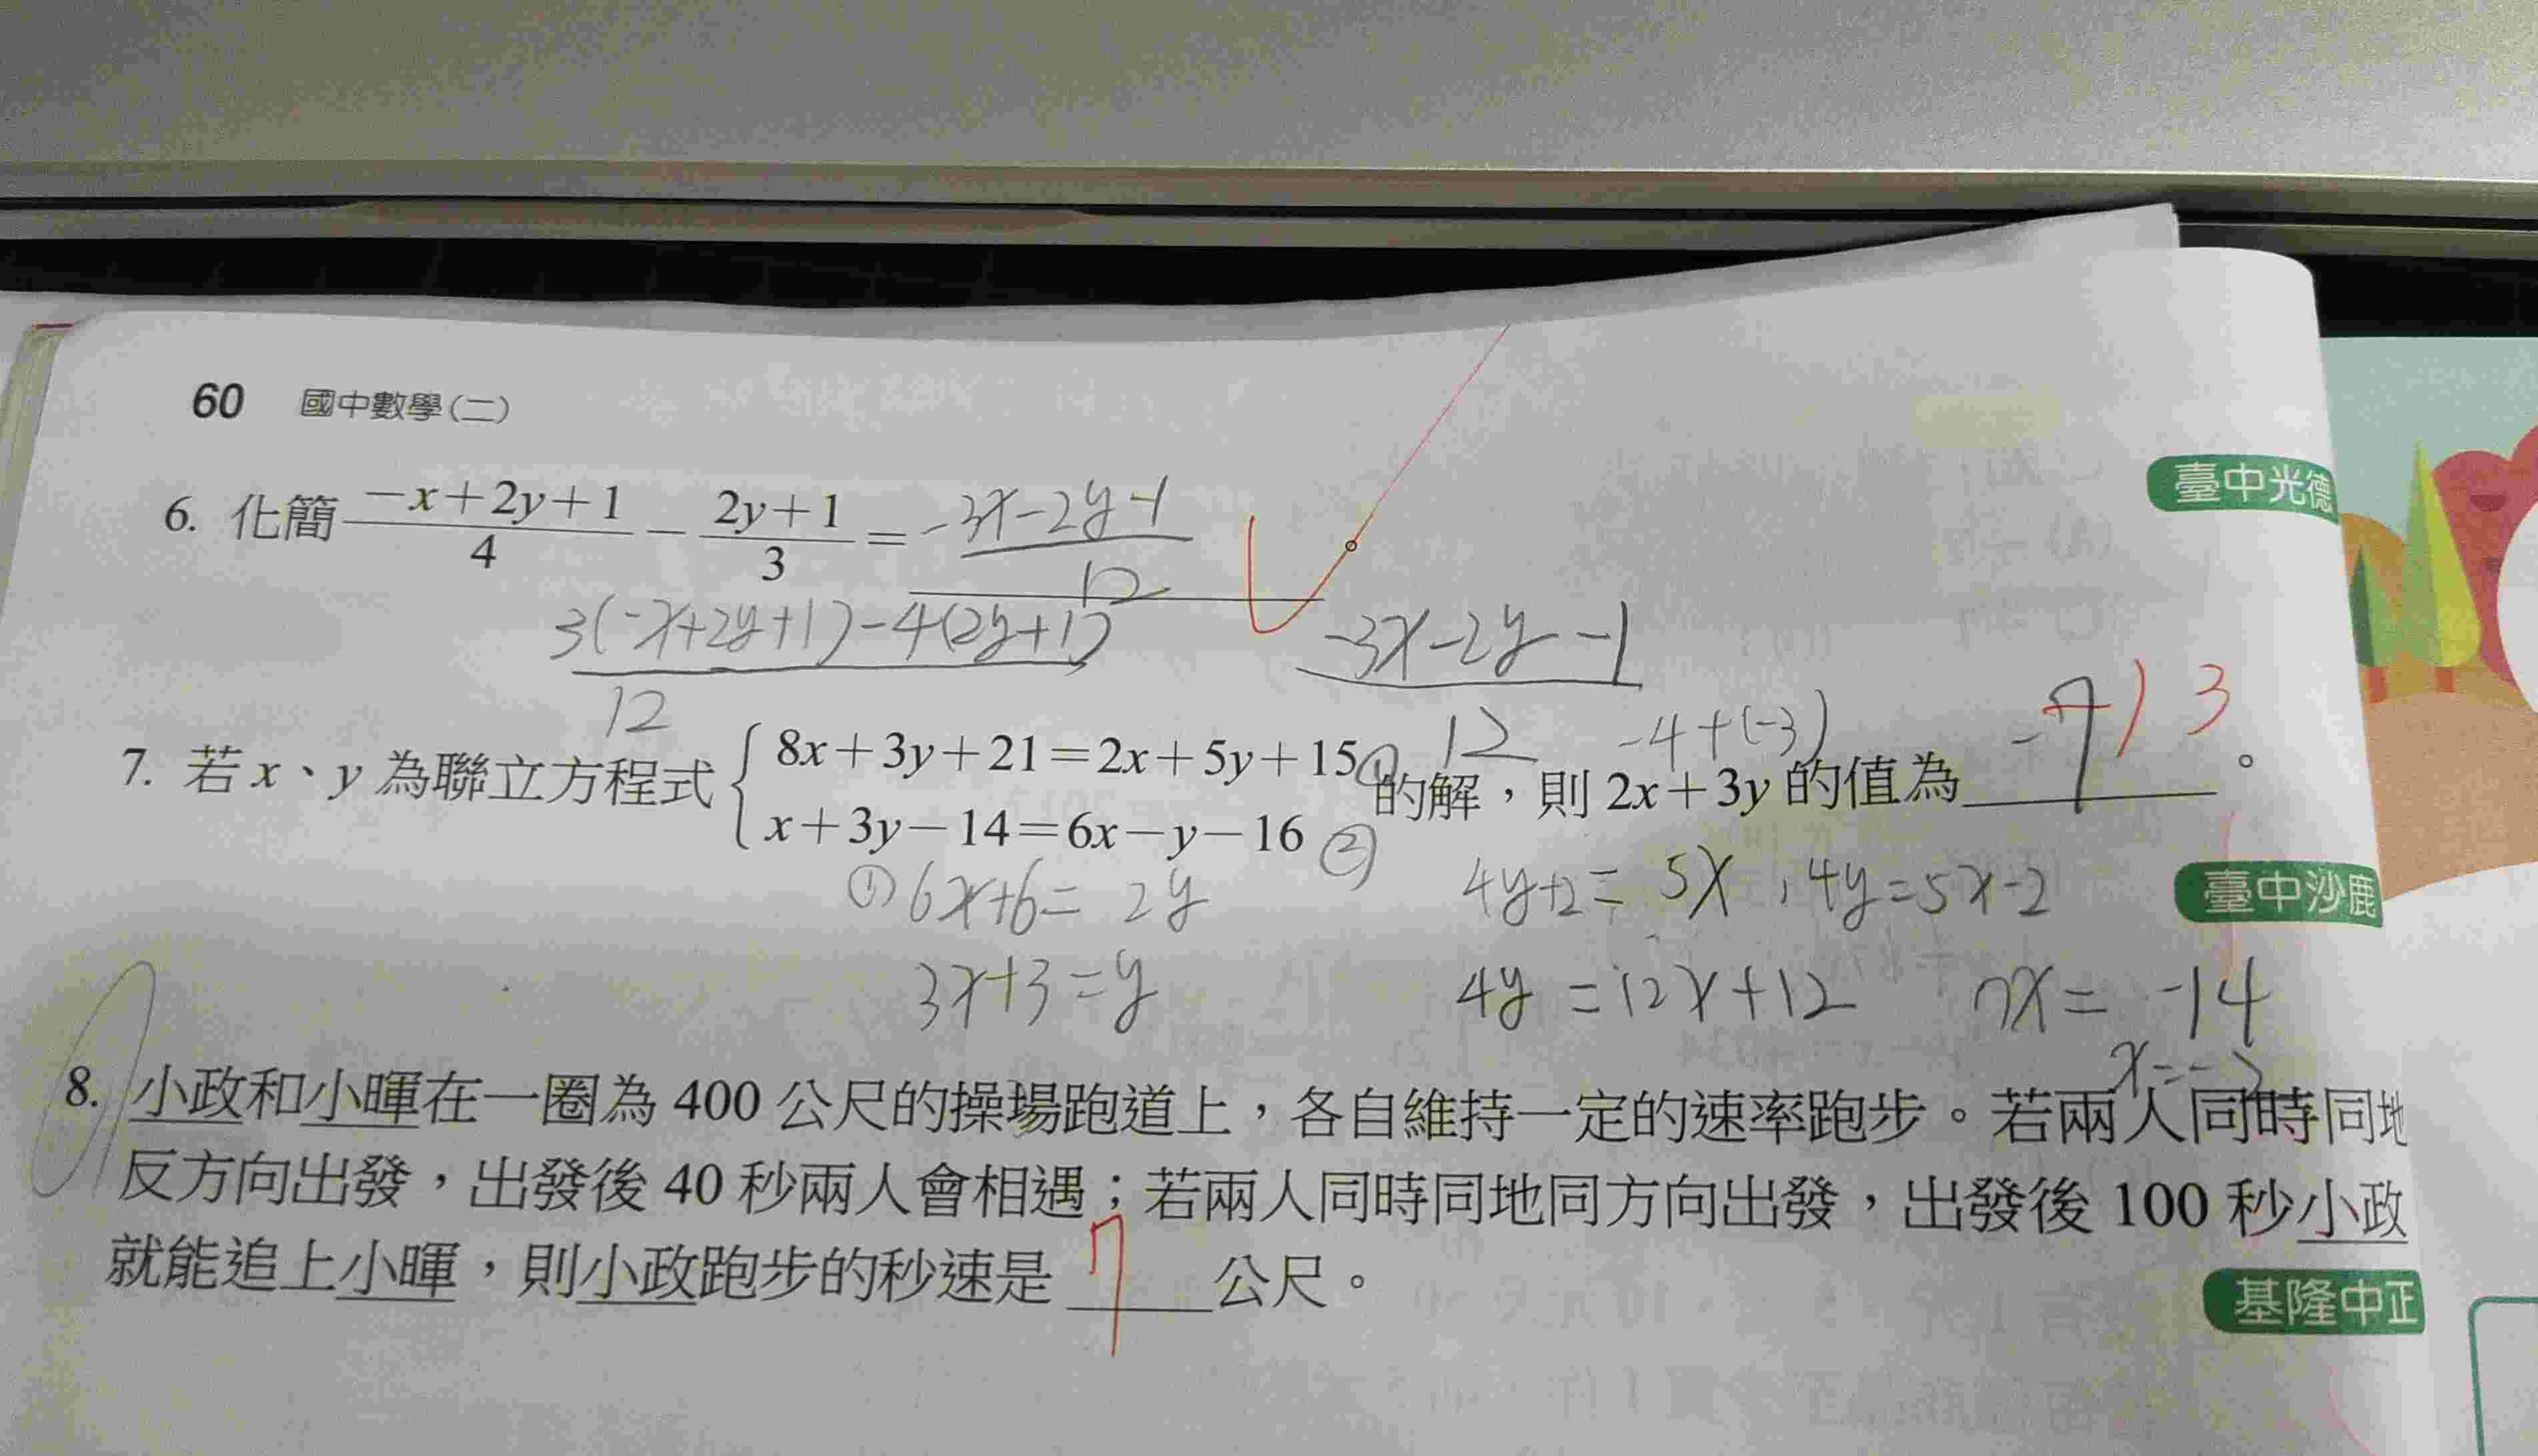 60 國中數學(二)
臺中光德
6. 化簡 (−x+2y+1)/4 − (2y+1)/3 = (-3x-2y-1)/12
(3(-x+2y+1)-4(2y+1))/12
(-3x-2y-1)/12
-4+(-3)
7. 若 x、y 為聯立方程式 { 8x+3y+21=2x+5y+15 ① x+3y−14=6x−y−16 ② 的解,則 2x+3y 的值為 -7 13 。
臺中沙鹿
① 6x+6= 2y
4y+2= 5x , 4y=5x-2
3x+3=y
4y =12x+12 7x= -14
x=-2
8. 小政和小暉在一圈為 400 公尺的操場跑道上,各自維持一定的速率跑步。若兩人同時同地
反方向出發,出發後 40 秒兩人會相遇;若兩人同時同地同方向出發,出發後 100 秒小政
就能追上小暉,則小政跑步的秒速是 7 公尺。
基隆中正